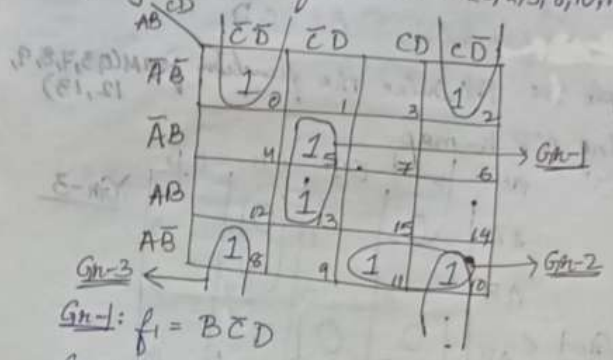 AB CD C̄D̄ C̄D CD CD̄
ĀB̄ 1 0 1 3 1 2
ĀB 4 1 5 7 6 Gr-1
AB 12 1 13 15 14
AB̄ 1 8 9 1 11 1 10 Gr-2
Gr-3
Gr-1: f₁ = B C̄ D